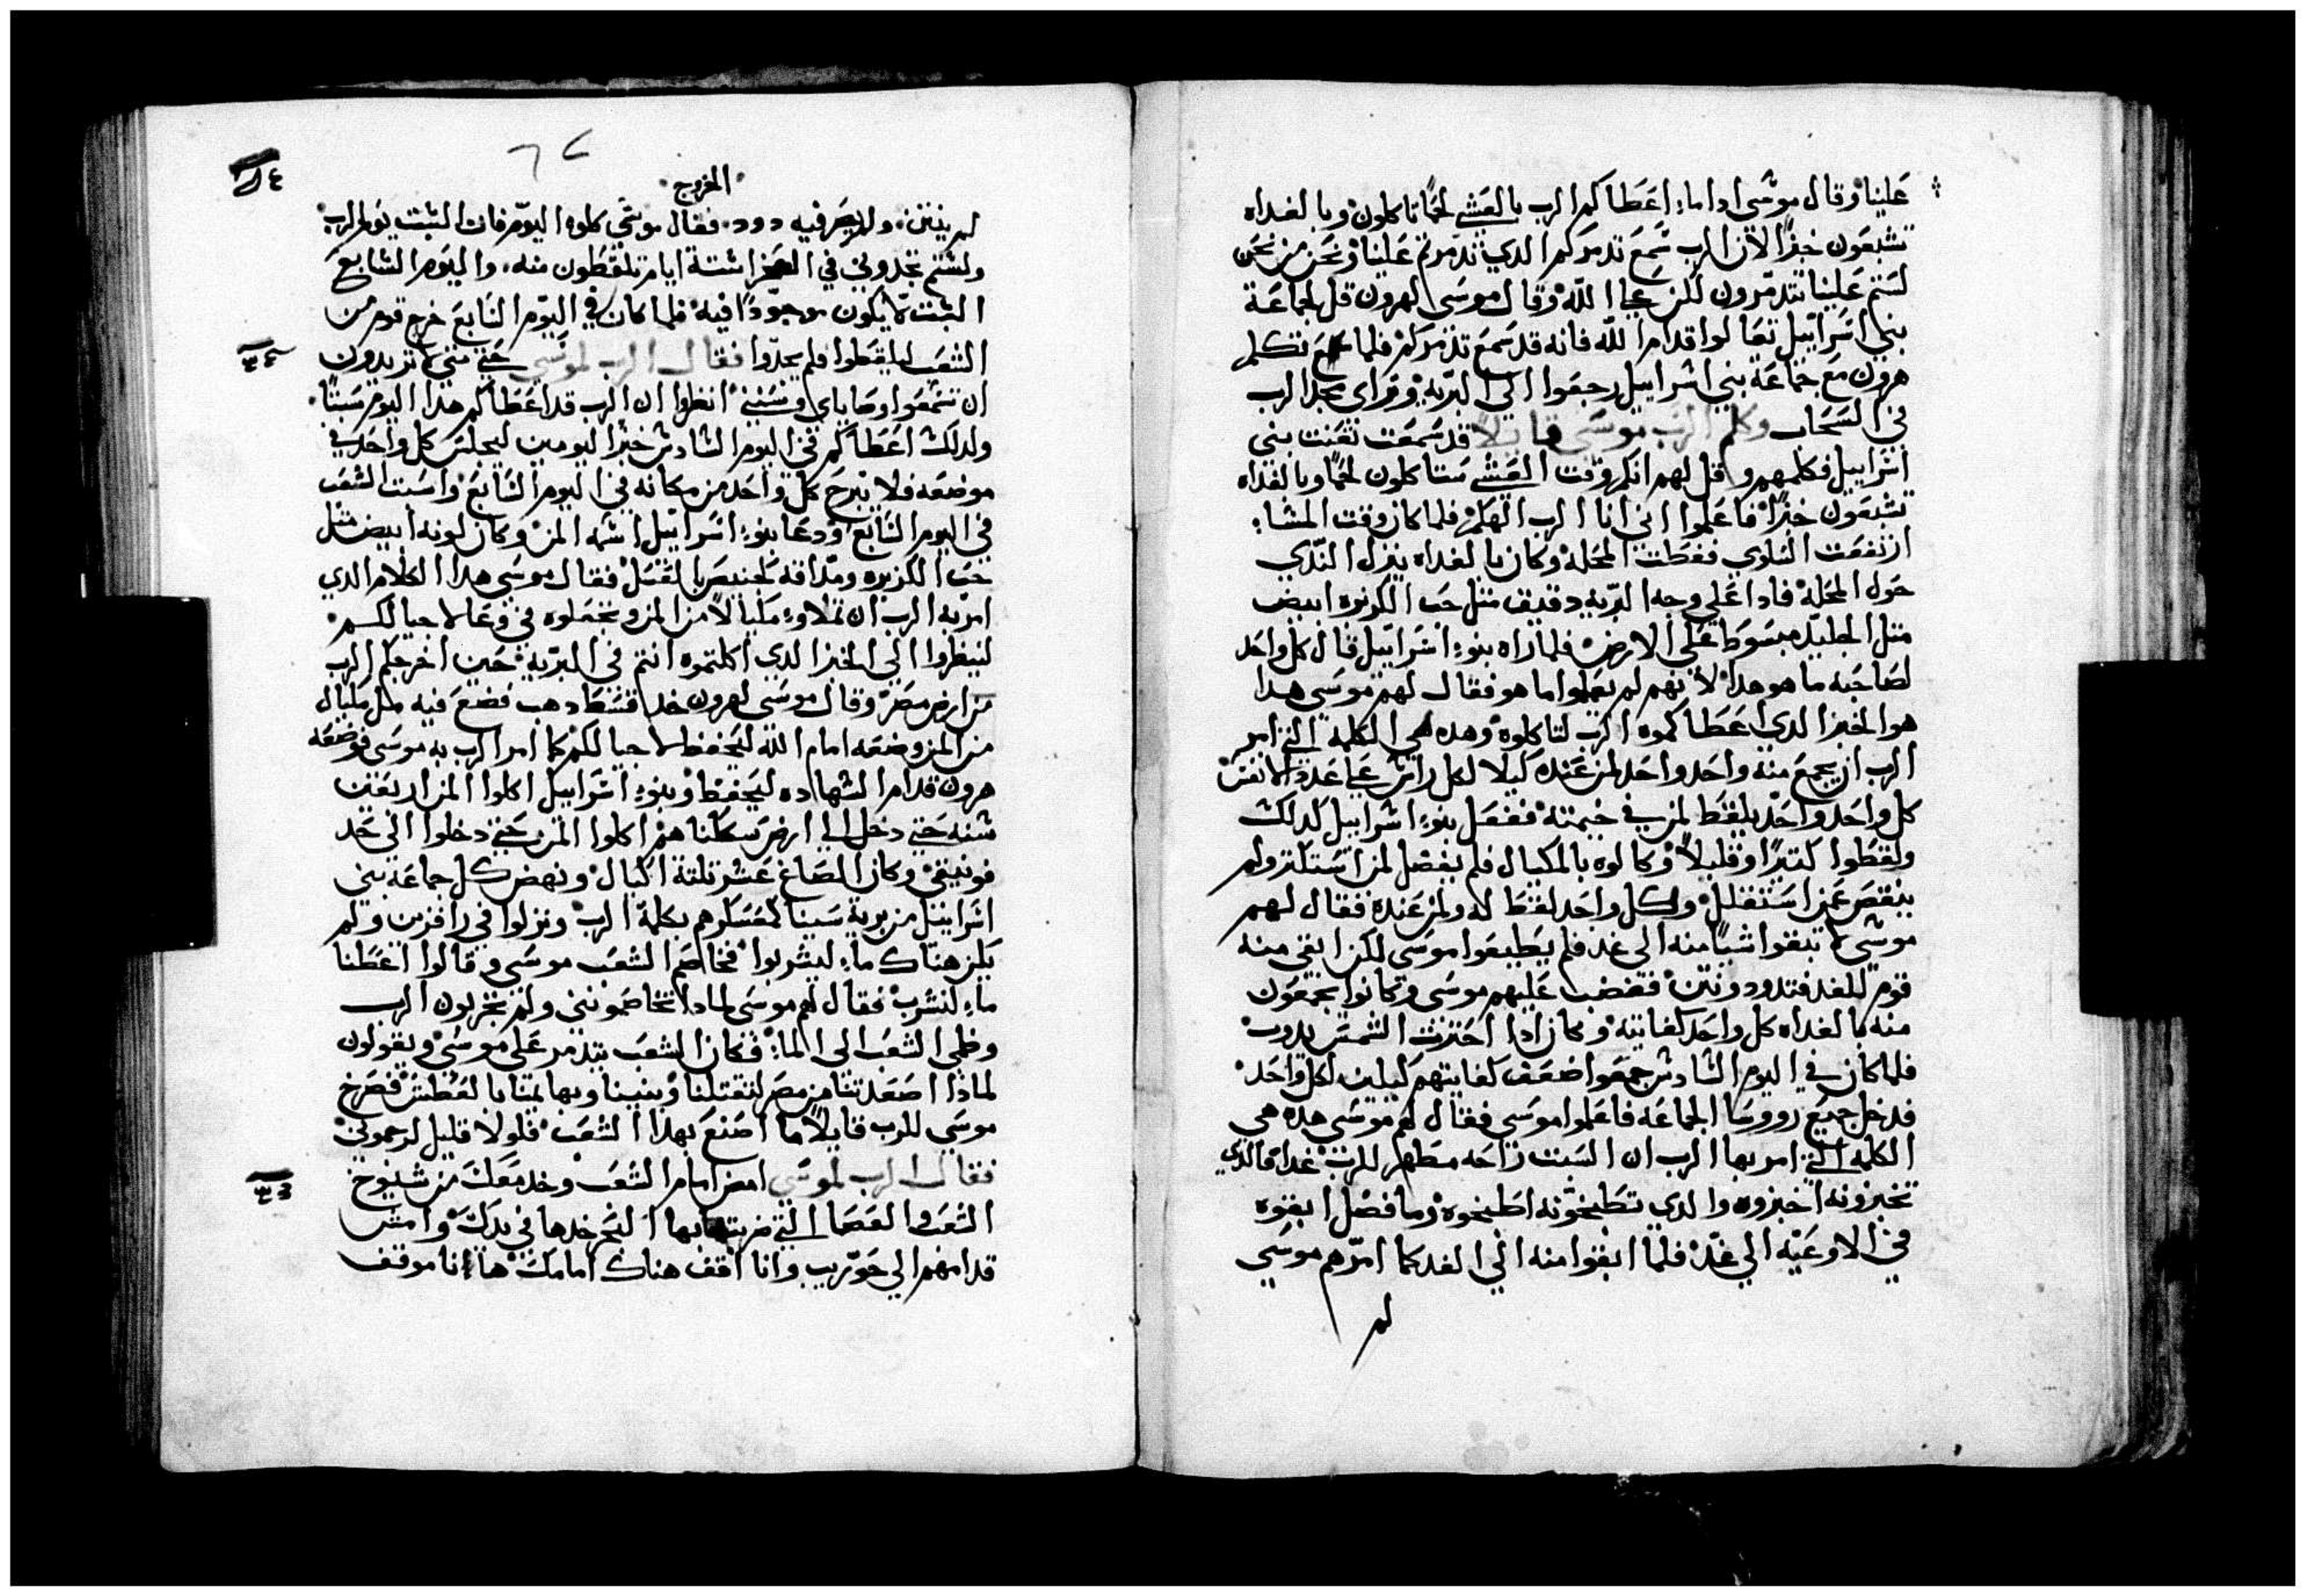 علينا وقال موسى ادا ما اعطاكم الرب بالعشي لحمًا تاكلون وبالغداه
تشبعون خبزًا لان الرب سمع تدمركم الدي تدمرتم علينا ونحن من نحن
لستم علينا تتدمرون لكن علي الله وقال موسى لهرون قل لجماعة
بني اسراييل تعالوا قدام الله فانه قد سمع تدمركم فلما تكلم
هرون مع جماعة بني اسراييل رجعوا الى البريه وتراى مجد الرب
في السحاب وكلم الرب موسى قايلا قد سمعت تقنت بني
اسراييل فكلمهم وقل لهم انكم وقت العشي ستاكلون لحمًا وبالغداه
تشبعون خبزًا فاعلموا انى انا الرب الهكم فلما كان وقت المشاء
ارتفعت السلوي فغطت المحلة وكان بالغداه ينزل الندي
حول المحلة فادا على وجه البريه دقيق متل حب الكزبره ابيض
متل الجليد مبسوط على الارض فلما راه بنوء اسراييل قال كل واحد
لصاحبه ما هو هدا لانهم لم يعلموا ما هو فقال لهم موسى هدا
هو الخبز الدي اعطاكموه الرب لتاكلوه وهده هي الكلمة التي امر
الرب ان يجمع منه واحد واحد لمن عنده كيلا لكل راس علي عدد الانفس
كل واحد واحد يلقط لمن في خيمته ففعل بنوء اسراييل كدلك
ولقطوا كتيرًا وقليلاً وكالوه بالمكيال فلم يفضل لمن استكتر ولم
ينقص عمن استقلل وكل واحد لقط له ولمن عنده فقال لهم
موسى لا تبقوا شيًا منه الى غد فلم يطيعوا موسى لكن ابقى منه
قوم للغد فتدود ونتن فغضب عليهم موسى وكانوا يجمعون
منه بالغداه كل واحد كفايته وكان ادا احترت الشمس يدوب
فلما كان في اليوم السادس جمعوا ضعف كفايتهم كيلين لكل واحد
فدخل جميع رووسا الجماعه فاعلموا موسى فقال لهم موسى هده هي
الكلمه التي امر بها الرب ان السبت راحه مطهر للرب غدا فالدي
تخبزونه اخبزوه والدي تطبخونه اطبخوه وما فضل ابقوه
في الاوعيه الي غد فلما ابقوا منه الى الغد كما امرهم موسي
لم
٦٤
الخروج
لم ينتن ولم يصر فيه دود فقال موسى كلوه اليوم فان السبت يوم للرب
ولستم تجدونى في الصحرا ستة ايام تلقطون منه واليوم السابع
السبت لا يكون موجودًا فيه فلما كان في اليوم السابع خرج قوم من
الشعب ليلقطوا فلم يجدوا فقال الرب لموسي حتي متي لا تريدون
ان تسمعوا وصاياي وسنني انظروا ان الرب قد اعطاكم هدا اليوم سبتًا
ولدلك اعطاكم في اليوم السادس خبز اليومين ليجلس كل واحد في
موضعه فلا يبرح كل واحد من مكانه في اليوم السابع واسبت الشعب
في اليوم السابع ودعا بنوء اسراييل اسمه المن وكان لونه ابيض متل
حب الكزبره ومداقه كخبيص بالعسل فقال موسى هدا الكلام الدي
امر به الرب ان تملاوء مكيالاً من المن وتجعلوه في وعا لاجيالكم
لينظروا الي الخبز الدي اكلتموه انتم في البريه حين اخرجكم الرب
من ارض مصر وقال موسى لهرون خد قسط دهب فضع فيه مل مكيال
من المن وضعه امام الله ليحفظ لاجيالكم كما امر الرب به موسى فوضعه
هرون قدام الشهاده ليحفظ وبنوء اسراييل اكلوا المن اربعين
سنه حتي دخل الي ارض سكنا هم اكلوا المن حتي دخلوا الى حد
فونيقي وكان الصاع عشر تلتة اكيال ونهض كل جماعة بني
اسراييل من برية سينا كعسكرهم بكلمة الرب ونزلوا في رافزين ولم
يكن هناك ماء ليشربوا فخاصم الشعب موسى وقالوا اعطنا
ماء لنشرب فقال لهم موسى لمادا تخاصمونني ولم تجربون الرب
وظمي الشعب الى الماء فكان الشعب يتدمر على موسى ويقولون
لماذا اصعدتنا من مصر لتقتلنا وبنينا وبهايمنا بالعطش فصرخ
موسي للرب قايلاً ما اصنع بهدا الشعب فلولا قليل لرجموني
فقال الرب لموسى امض امام الشعب وخد معك من شيوخ
الشعب والعصا التي ضربت بها البحر خدها في يدك وامش
قدامهم الي حوريب وانا اقف هناك امامك ها انا موقف